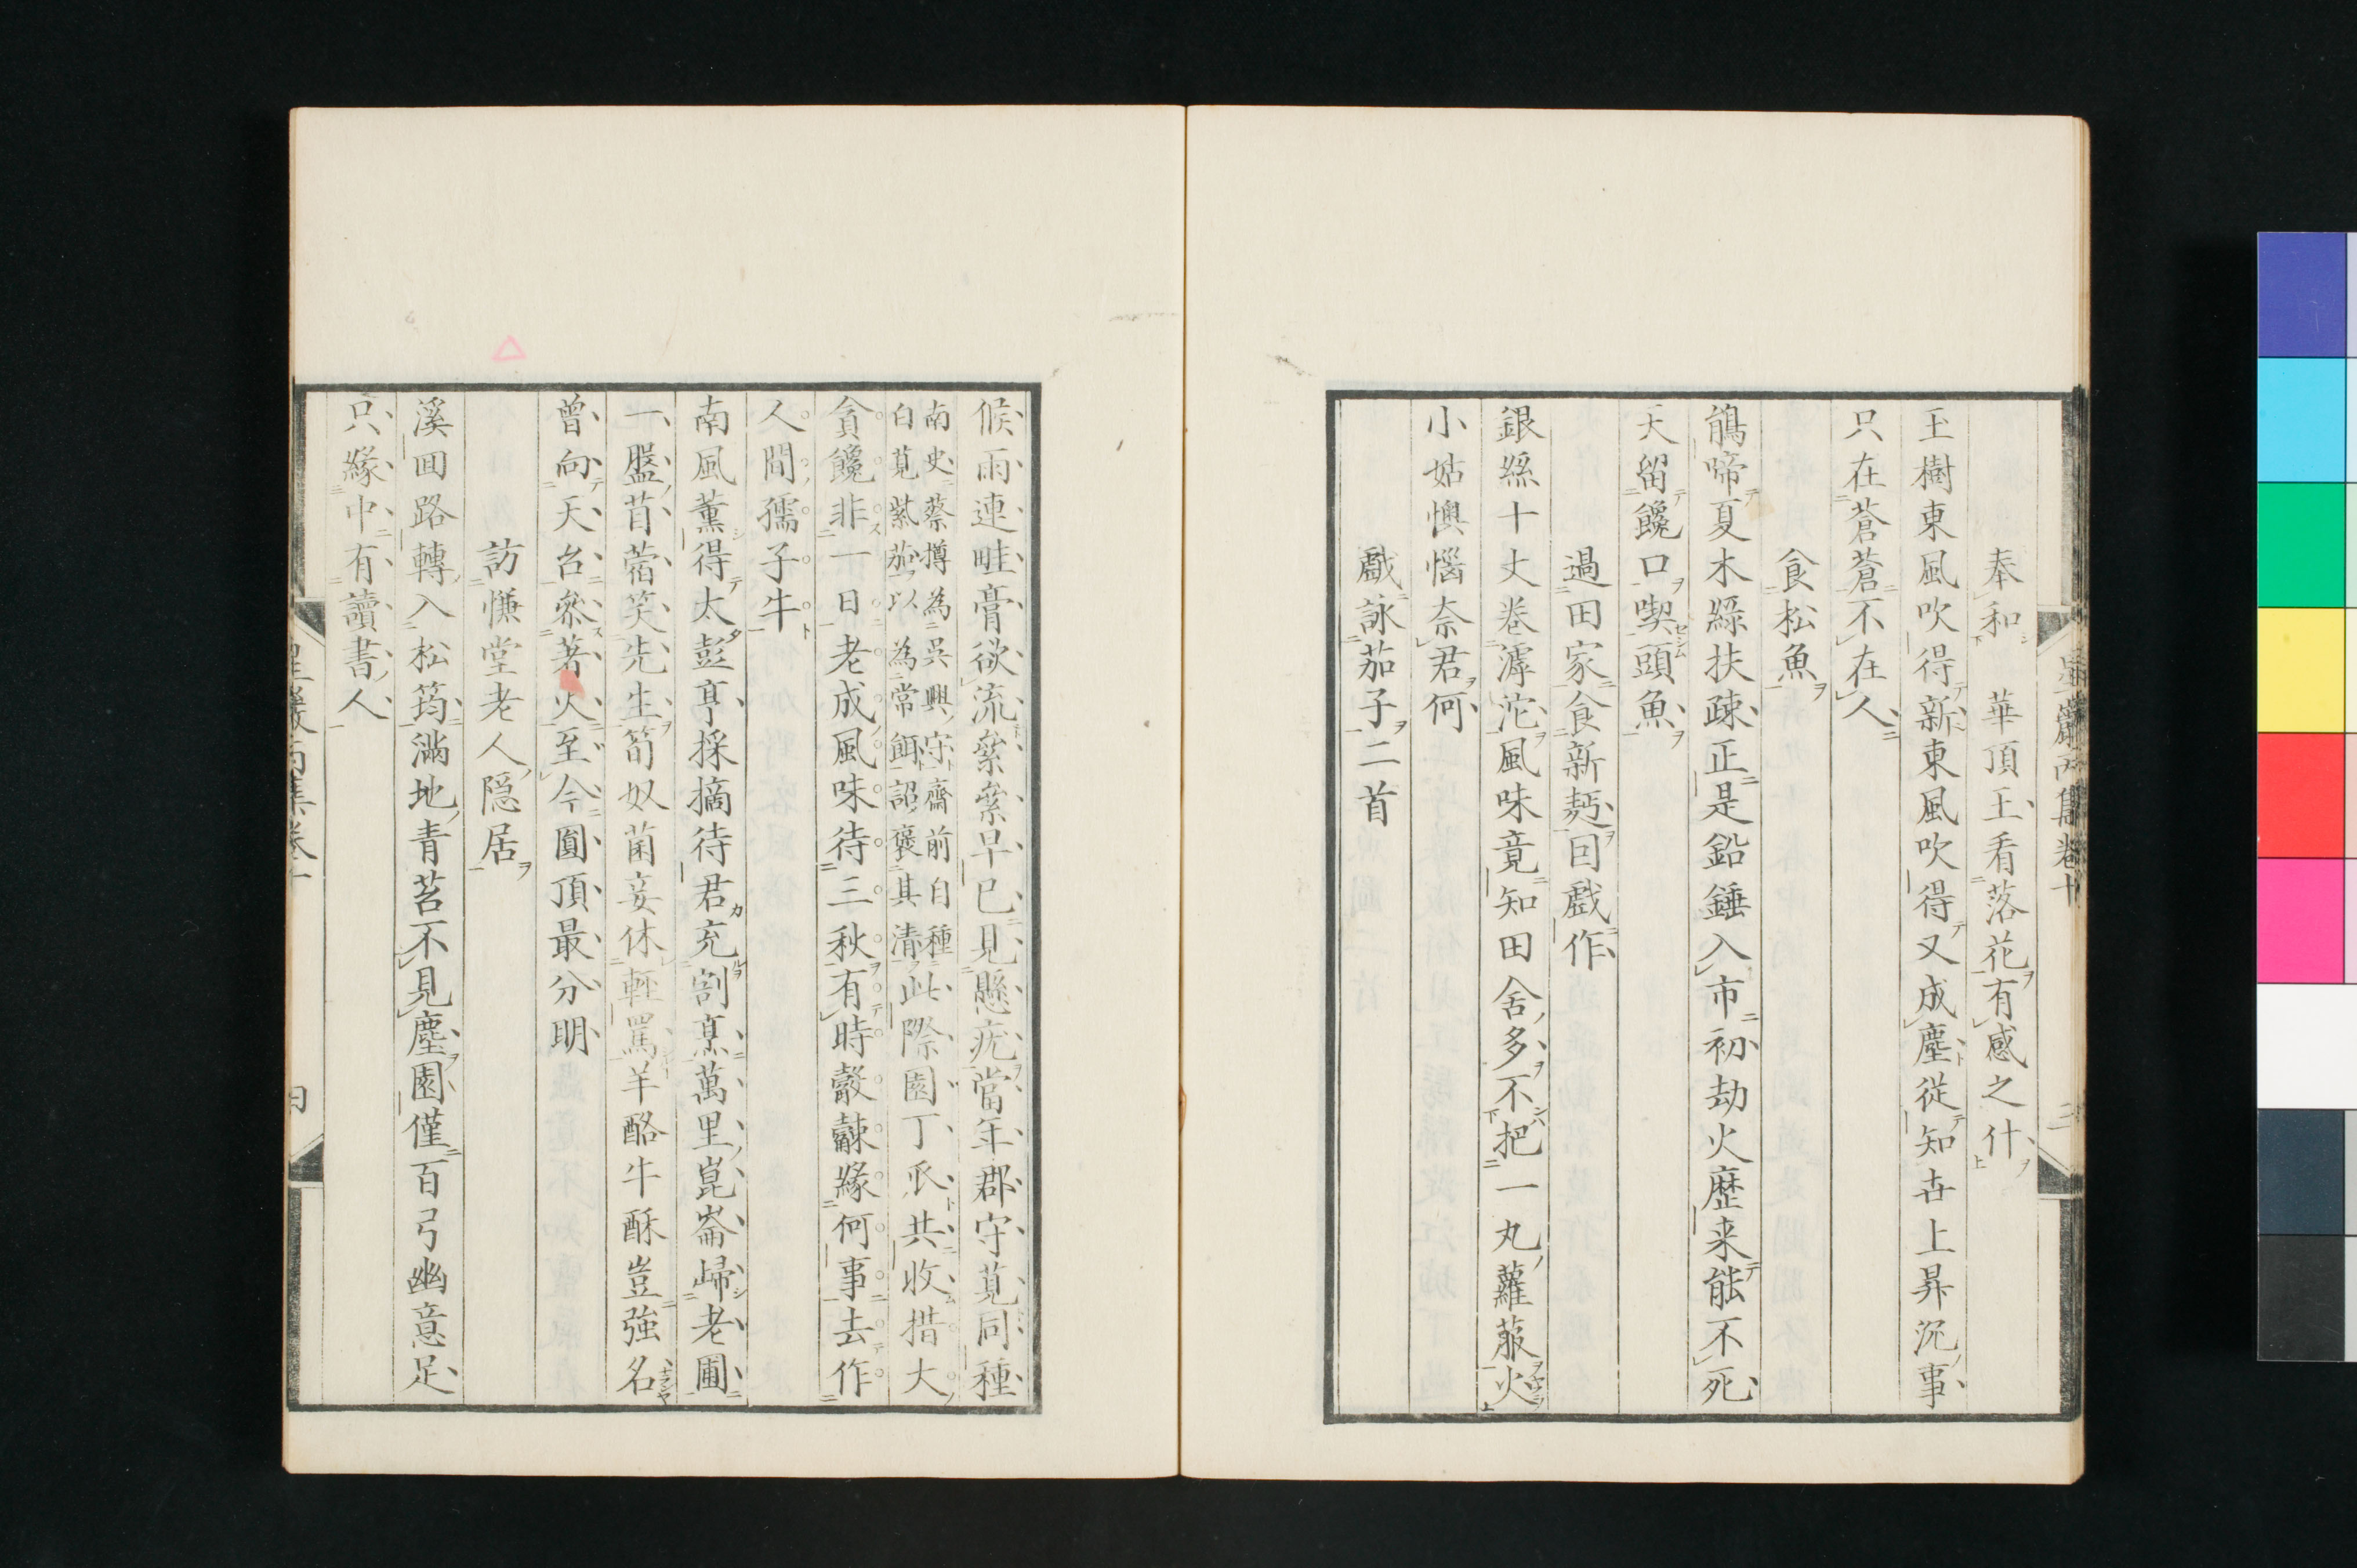 奉和　華頂王看落花有感之什
玉樹東風吹得新東風吹得又成塵從知世上昇沉事
只在蒼蒼不在人
食松魚
鵑啼夏木綠扶疎正是鉛錘入市初劫火歷来能不死
天留饞口喫頭魚
過田家食新麪囙戲作
銀絲十丈卷滹沱風味竟知田舍多不把一丸蘿菔火
小姑懊惱奈君何
戲詠茄子二首
候雨連畦膏欲流纍纍早已見懸疣當年郡守莧同種
南史蔡撙為吳興守齋前自種
白莧紫茄以為常餌詔褒其清
此際園丁瓜共收措大
貪饞非一日老成風味待三秋有時觳觫緣何事去作
人間孺子牛
南風薰得太彭亨採摘待君充割烹萬里崑崙歸老圃
一盤苜蓿笑先生筍奴菌妾休輕罵羊酪牛酥豈強名
曾向天台叅著火至今圓頂最分明
訪慊堂老人隱居
溪回路轉入松筠滿地青苔不見塵園僅百弓幽意足
只緣中有讀書人